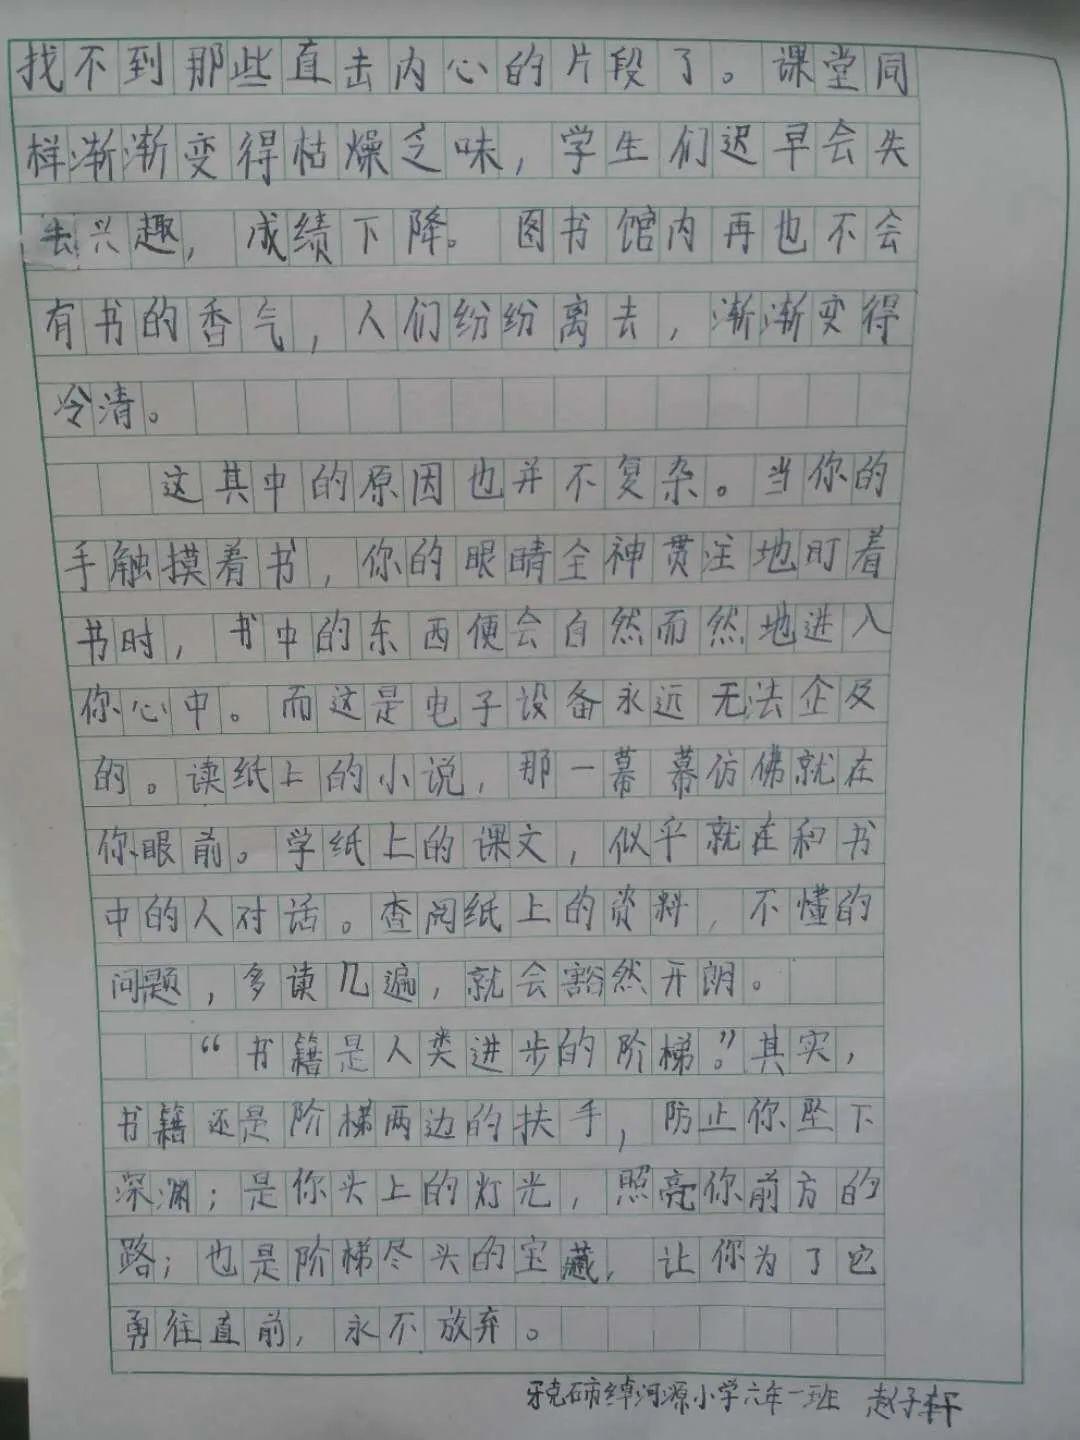 找不到那些直击内心的片段了。课堂同
样渐渐变得枯燥乏味，学生们迟早会失
去兴趣，成绩下降。图书馆内再也不会
有书的香气，人们纷纷离去，渐渐变得
冷清。
这其中的原因也并不复杂。当你的
手触摸着书，你的眼睛全神贯注地盯着
书时，书中的东西便会自然而然地进入
你心中。而这是电子设备永远无法企及
的。读纸上的小说，那一幕幕仿佛就在
你眼前。学纸上的课文，似乎就在和书
中的人对话。查阅纸上的资料，不懂的
问题，多读几遍，就会豁然开朗。
“书籍是人类进步的阶梯。”其实，
书籍还是阶梯两边的扶手，防止你坠下
深渊；是你头上的灯光，照亮你前方的
路；也是阶梯尽头的宝藏，让你为了它
勇往直前，永不放弃。
牙克石市绰河源小学六年一班 赵子轩